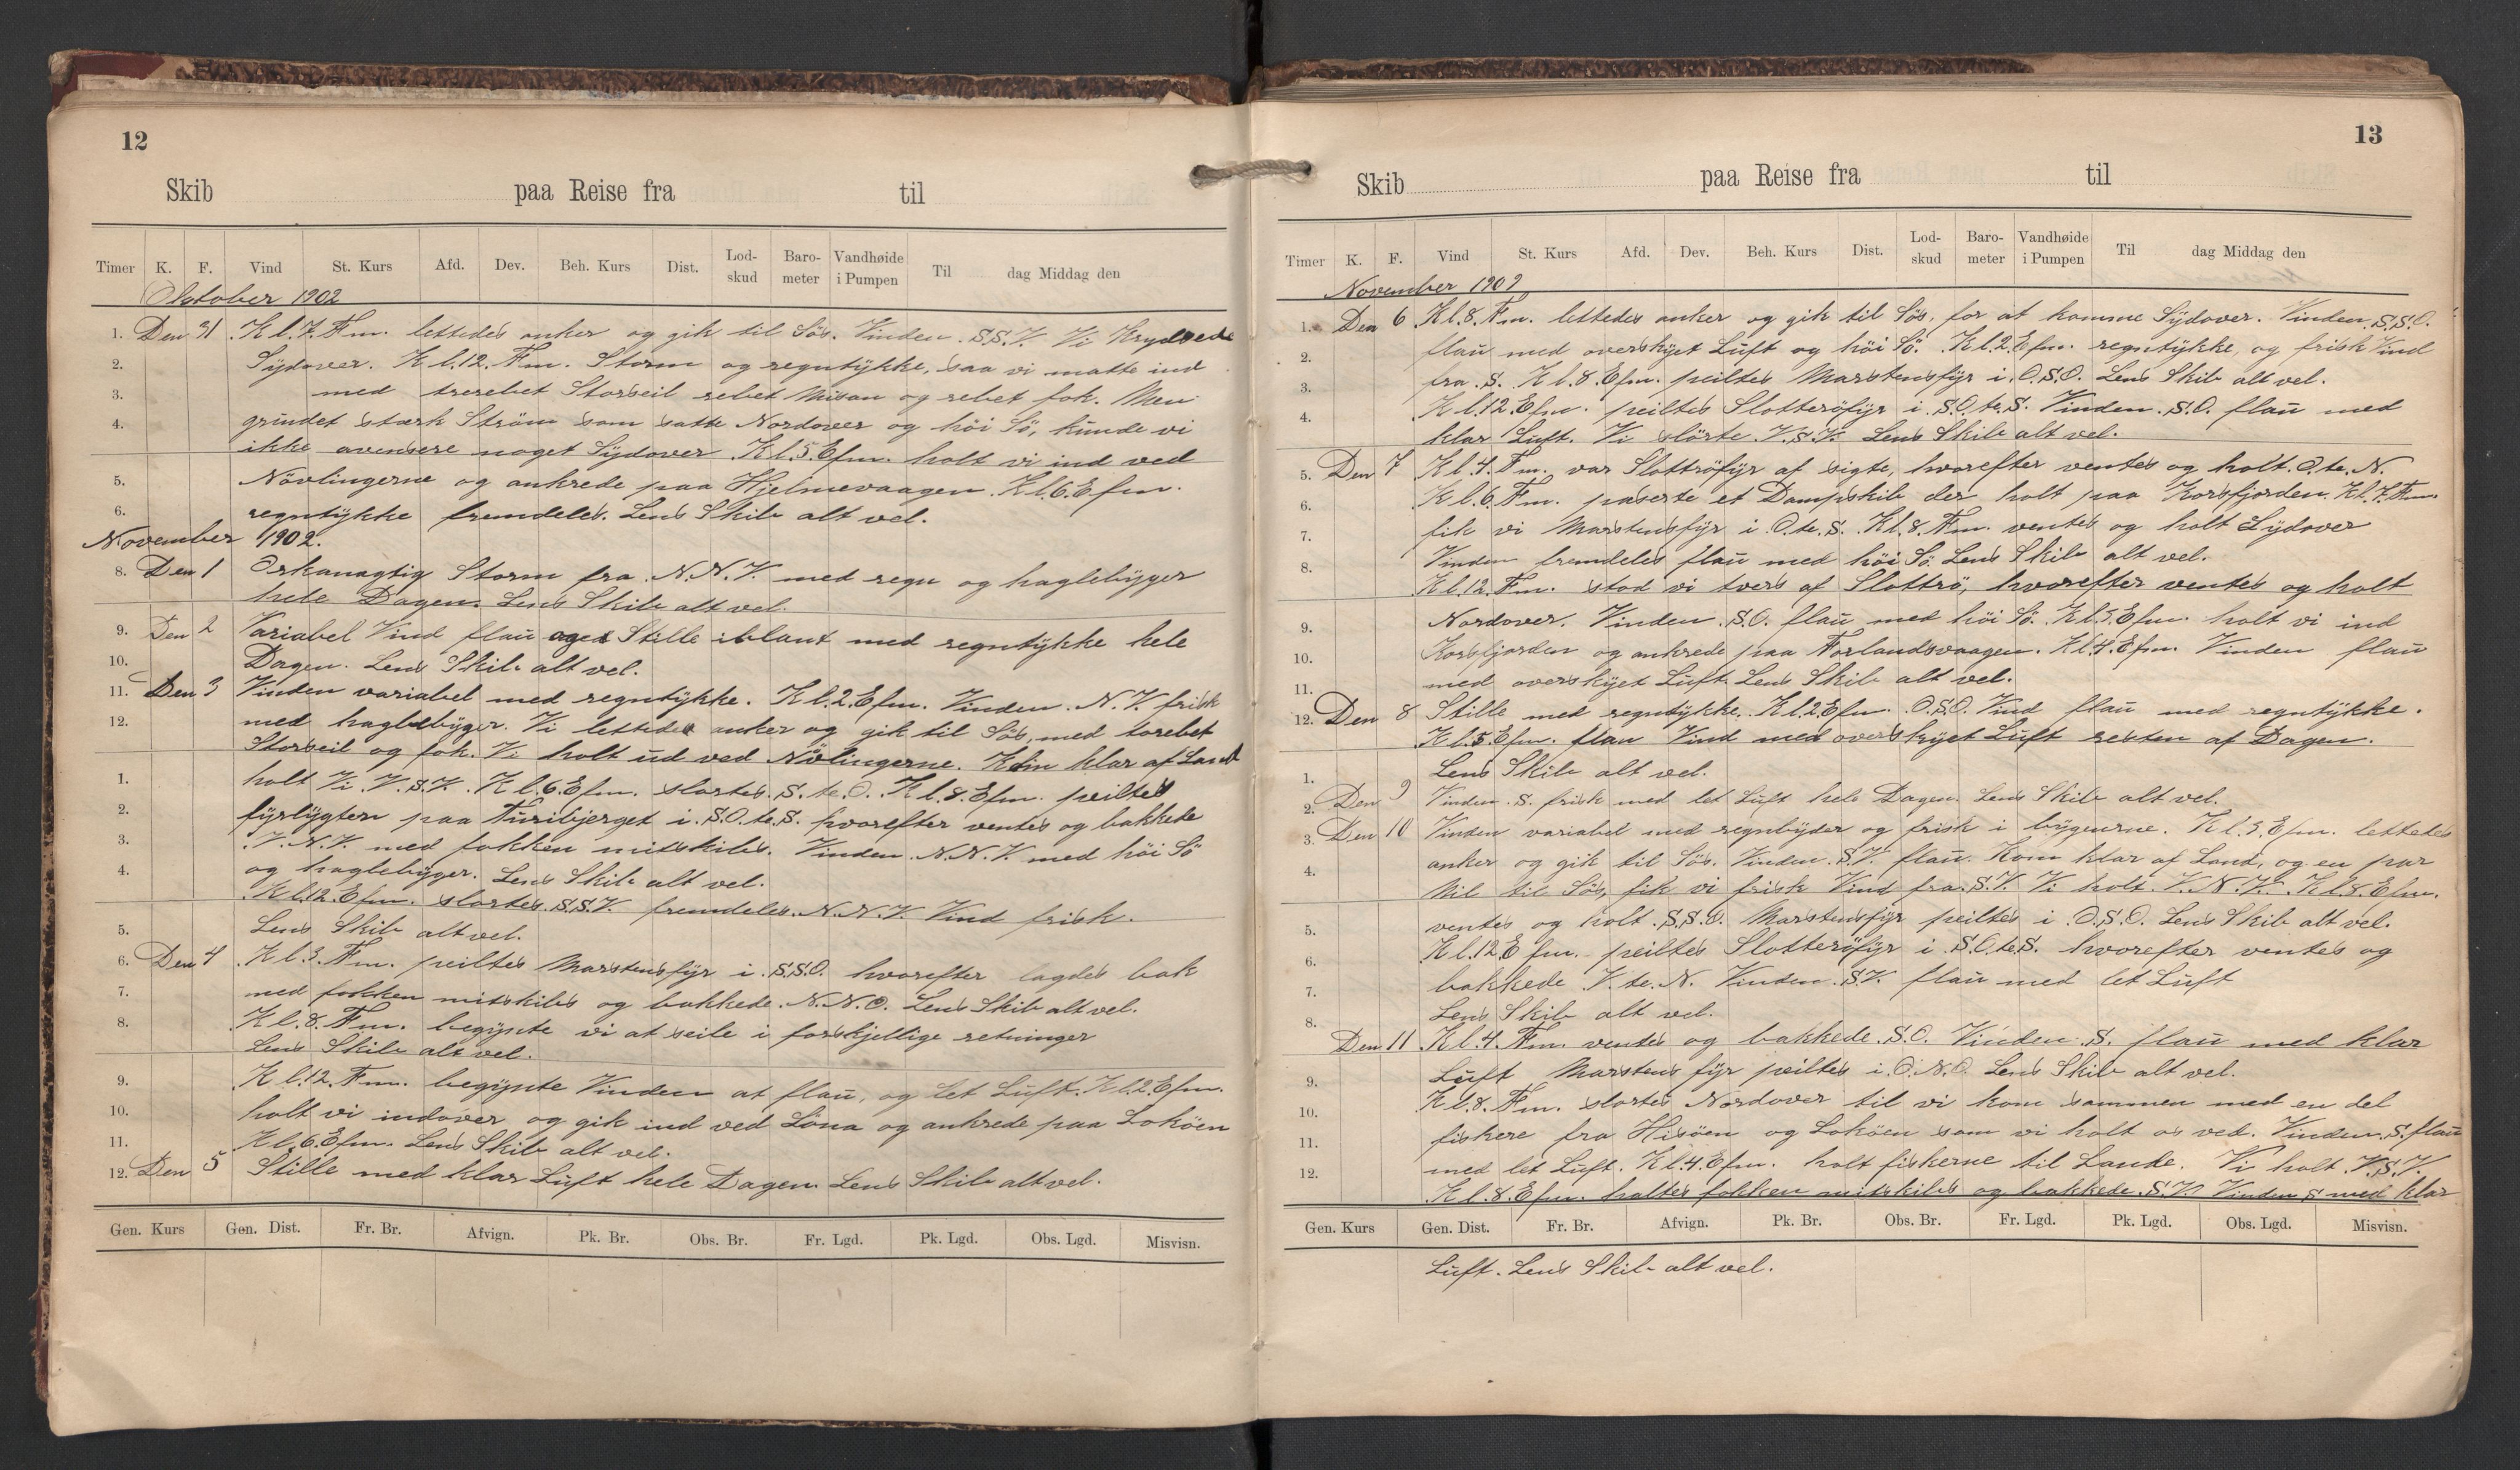 12
Skib paa Reise fra til
Timer K. F. Vind St. Kurs Afd. Dev. Beh. Kurs Dist. Lod-skud Baro-meter Vandhøide i Pumpen Til dag Middag den
Oktober 1902
1. Den 31 Kl. 7. Fm. lettedes anker og gik til Sös. Vinden. S.S.V. Vi Krydsede
2. Sydover. Kl. 12. Fm. Storm og regntykke, saa vi matte ind
3. med trerebet Storseil rebet Misan og rebet fok. Men
4. grundet stærk Ström som satte Nordover og höi Sö, kunde vi
ikke avensere noget Sydover Kl. 5. Efm. holt vi ind ved
5. Növlingerne og ankrede paa Hjelmevaagen. Kl. 6. Efm.
6. regntykke fremdeles. Lens Skib alt vel.
November 1902.
8. Den 1 Orkanagtig Storm fra N.N.V. med regn og haglebyger
hele Dagen. Lens Skib alt vel.
9. Den 2 Variabel Vind flau Stille iblant med regntykke hele
10. Dagen. Lens Skib alt vel.
11. Den 3 Vinden variabel med regntykke. Kl. 2. Efm. Vinden. N.V. frisk
12. med haglebyger. Vi lettede anker og gik til Sös, med torebet
Storseil og fok. Vi holt ud ved Növlingerne. Kom klar af Land
1. holt Vi V.S.V. Kl. 6. Efm. slortes. S. te. O. Kl. 8. Efm. peiltes
2. fyrlygten paa i. S.O. te. S. hvorefter ventes og bakkede
3. V.N.V. med fokken mitskibs. Vinden. N.N.V. med höi Sö
4. og haglebyger. Lens Skib alt vel.
Kl. 12. Efm. slortes. S.S.V. fremdeles. N.N.V. Vind frisk.
5. Lens Skib alt vel.
6. Den 4 Kl. 3. Fm. peiltes Marstensfyr i. S.S.O. hvorefter lagdes bak
7. med fokken mitskibs og bakkede. N.N.O. Lens Skib alt vel.
8. Kl. 8. Fm. begynte vi at seile i forskjellige retninger
Lens Skib alt vel.
9. Kl. 12. Fm. begynte Vinden at flau, og let Luft. Kl. 2. Efm.
10. holt vi indover og gik ind ved Löna og ankrede paa Loköen
11. Kl. 6. Efm. Lens Skib alt vel.
12. Den 5 Stille med klar Luft hele Dagen. Lens Skib alt vel.
Gen. Kurs Gen. Dist. Fr. Br. Afvign. Pk. Br. Obs. Br. Fr. Lgd. Pk. Lgd. Obs. Lgd. Misvisn.
13
Skib paa Reise fra til
Timer K. F. Vind St. Kurs Afd. Dev. Beh. Kurs Dist. Lod-skud Baro-meter Vandhøide i Pumpen Til dag Middag den
November 1902
1. Den 6 Kl. 8. Fm. lettedes anker og gik til Sös, for at komme Sydover. Vinden. S.S.O.
2. flau med overskyet Luft og höi Sö. Kl. 2. Efm. regntykke, og frisk Vind
3. fra. S. Kl. 8. Efm. peiltes Marstensfyr i. O.S.O. Lens Skib alt vel.
4. Kl. 12. Efm. peiltes Slotteröfyr i. S.O. te. S. Vinden. S.O. flau med
klar Luft. Vi slörte V.S.V. Lens Skib alt vel.
5. Den 7 Kl. 4. Fm. var Slottröfyr af sigte, hvorefter ventes og holt. O. te. N.
6. Kl. 6. Fm. paserte et Dampskib der holt paa Korsfjorden. Kl. 7. Fm.
7. fik vi Marstensfyr i. O. te. S. Kl. 8. Fm. ventes og holt Sydover
8. Vinden fremdeles flau med höi Sö. Lens Skib alt vel.
Kl. 12. Fm. stod vi tvers af Slottrö, hvorefter ventes og holt
9. Nordover. Vinden. S.O. flau med höi Sö. Kl. 3. Efm. holt vi ind
10. Korsfjorden og ankrede paa Forlandsvaagen. Kl. 4. Efm. Vinden flau
11. med overskyet Luft. Lens Skib alt vel.
12. Den 8 Stille med regntykke. Kl. 2. Efm. O.S.O. Vind flau med regntykke.
Kl. 5. Efm. flau Vind med overskyet Luft resten af Dagen.
1. Lens Skib alt vel.
2. Den 9 Vinden. S. frisk med let Luft hele Dagen. Lens Skib alt vel.
3. Den 10 Vinden variabel med regnbyder og frisk i bygeurne. Kl. 3. Efm. lettedes
4. anker og gik til Sös. Vinden. S.V. flau. Kom klar af Land, og en par
Mil til Sös, fik vi frisk Vind fra. S.V. Vi holt. V.N.V. Kl. 8. Efm.
5. ventes og holt. S.S.O. Marstensfyr peiltes i. O.S.O. Lens Skib alt vel.
6. Kl. 12. Efm. peiltes Slotteröfyr i. S.O. te. S. hvorefter ventes og
7. bakkede V. te. N. Vinden. S.V. flau med let Luft
8. Lens Skib alt vel.
Den 11 Kl. 4. Fm. ventes og bakkede. S.O. Vinden. S. flau med klar
9. Luft Marstens fyr peiltes i. O.N.O. Lens Skib alt vel.
10. Kl. 8. Fm. slortes Nordover til vi kom sammen med en del
11. fiskere fra Hisöen og Loköen som vi holt os ved. Vinden. S. flau
12. med let Luft. Kl. 4. Efm. holt fiskerne til Lande. Vi holt. V.S.V.
Kl. 8. Efm. haltes fokken mitskibs og bakkede. S.V. Vinden S med klar
Gen. Kurs Gen. Dist. Fr. Br. Afvign. Pk. Br. Obs. Br. Fr. Lgd. Pk. Lgd. Obs. Lgd. Misvisn.
Luft. Lens Skib alt vel.